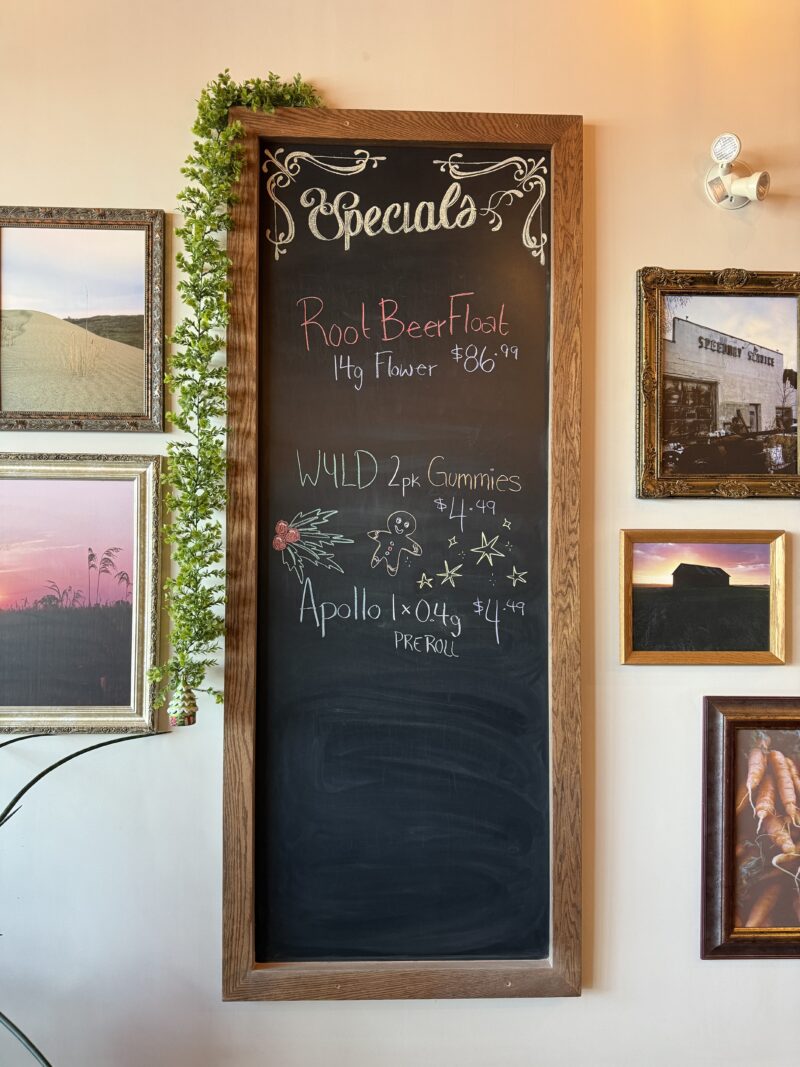 Specials
Root Beer Float
14g Flower $86.99
WYLD 2pk Gummies
$4.49
Apollo 1x0.4g $4.49
PREROLL
SPEEDWAY SERVICE